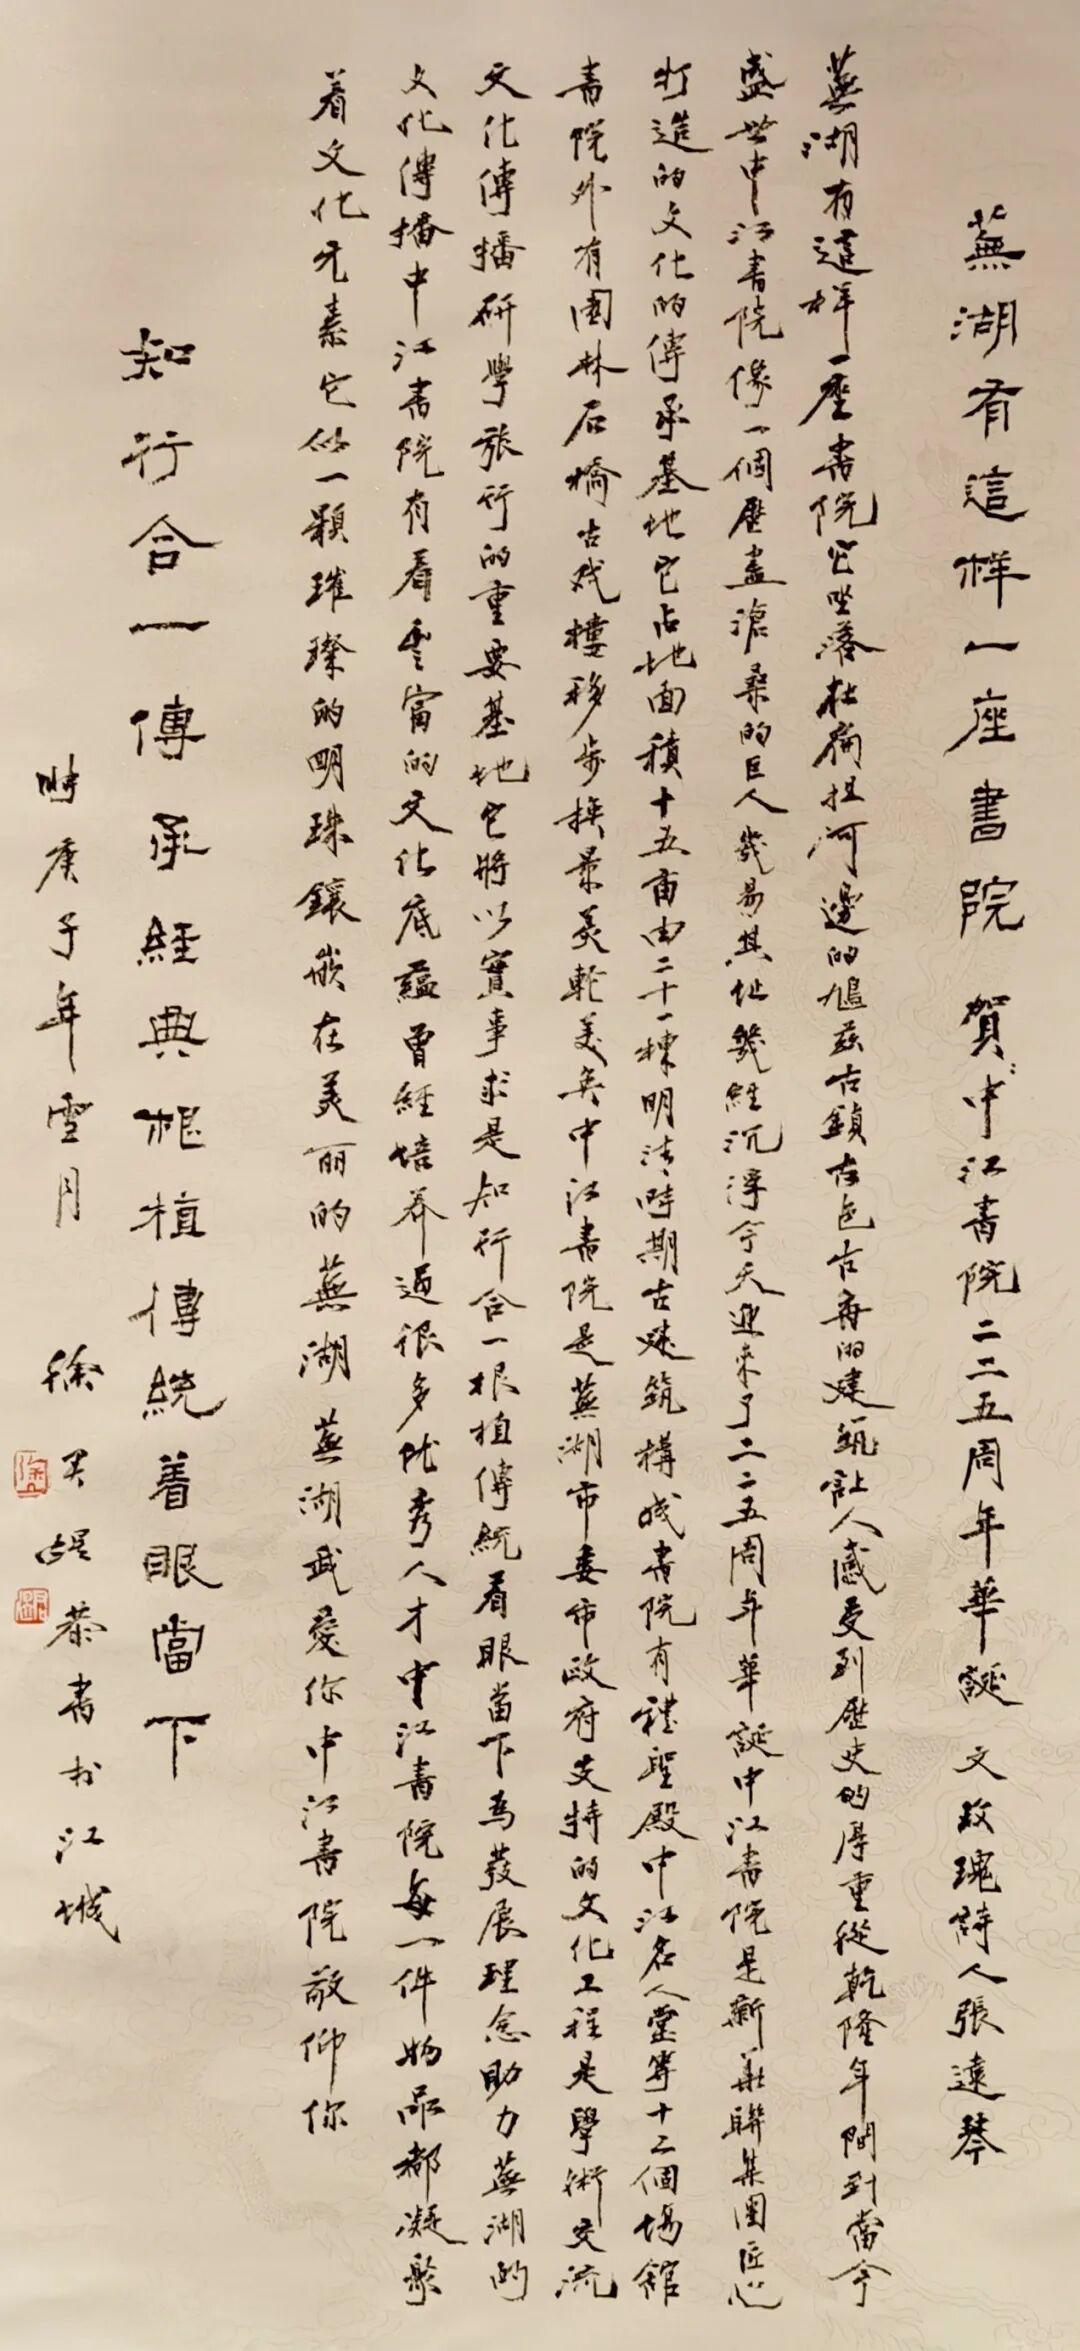 蕪湖有這样一座書院 賀:中江書院二二五周年華誕 文玫瑰詩人張遠琴
蕪湖有這样一座書院它坐落在扁担河邊的鳩兹古鎮古色古香的建筑讓人感受到歷史的厚重從乾隆年間到當今
盛世中江書院像一個歷盡滄桑的巨人幾易其址幾經沉浮今天迎来了二二五周年華誕中江書院是新華聯集團匠心
打造的文化的傳承基地它占地面積十五亩由二十一棟明清時期古建筑構成書院有禮聖殿中江名人堂等十二個場館
書院外有園林石橋古戏樓移步换景美輪美奂中江書院是蕪湖市委市政府支持的文化工程是學術交流
文化傳播研學旅行的重要基地它將以實事求是知行合一根植傳統着眼當下為發展理念助力蕪湖的
文化傳播中江書院有着丰富的文化底蕴曾經培养過很多优秀人才中江書院每一件物品都凝聚
着文化元素它似一顆璀璨的明珠鑲嵌在美丽的蕪湖 蕪湖我愛你中江書院敬仰你
知行合一傳承經典根植傳統着眼當下
時庚子年雪月 徐 恭書于江城